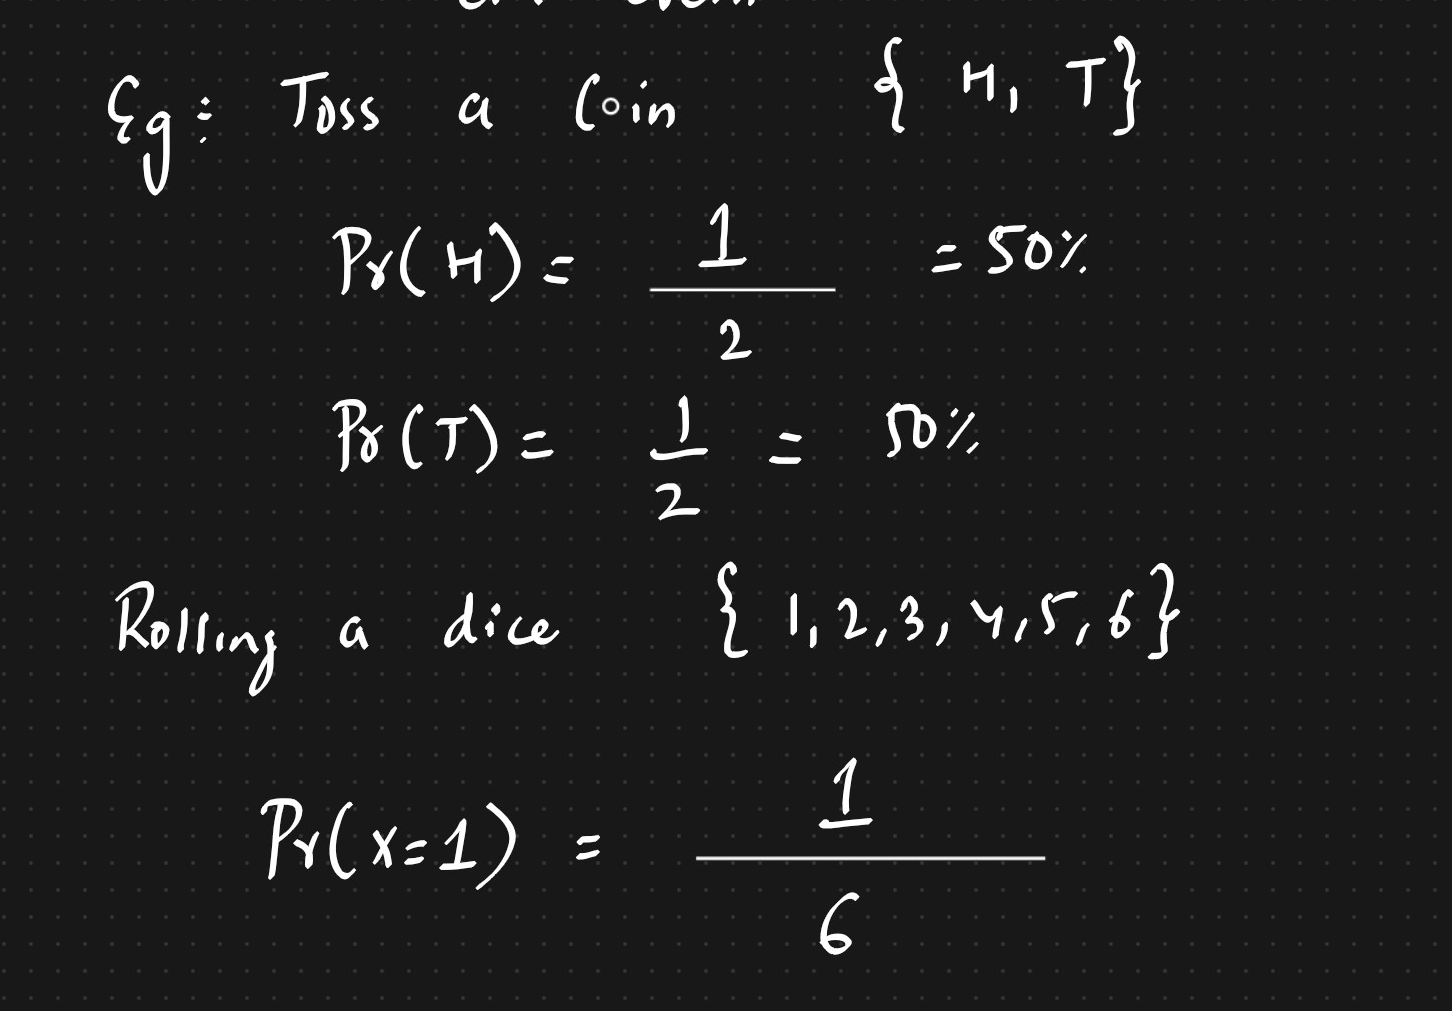 Eg: Toss a Coin { H, T}
Pr(H) = 1/2 = 50%
Pr(T) = 1/2 = 50%
Rolling a dice { 1,2,3,4,5,6}
Pr(x=1) = 1/6